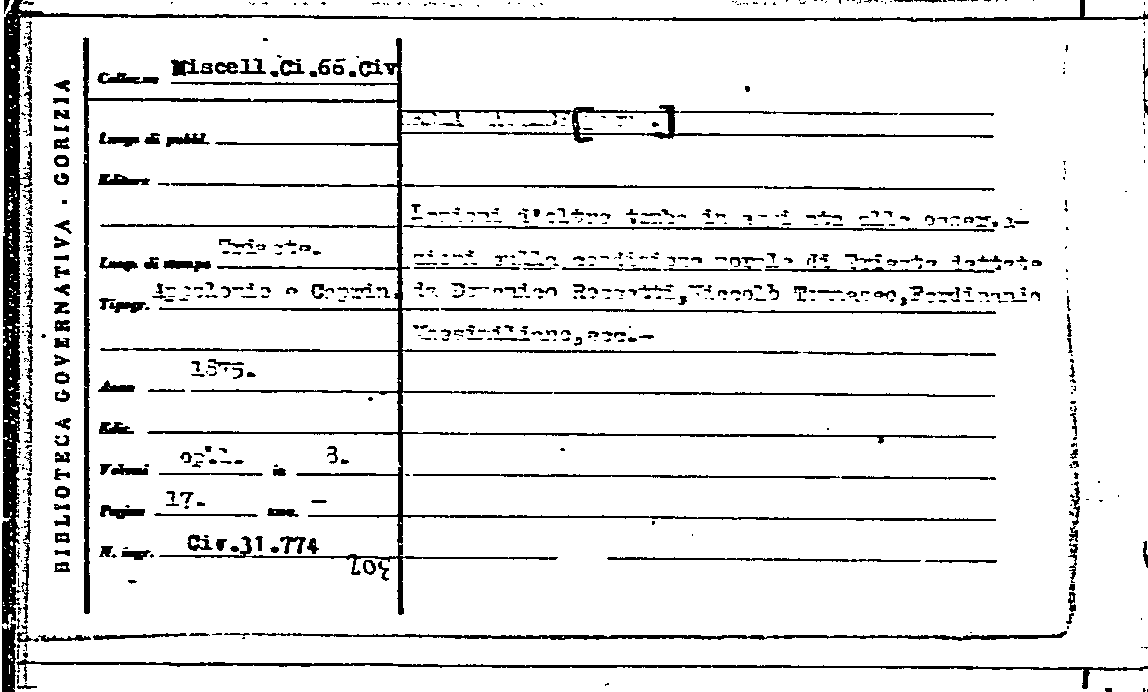 BIBLIOTECA GOVERNATIVA - GORIZIA
Collocaz. Miscell.Ci.66.Civ
Luogo di pubbl.
Editore
Lezioni d'oltre tomba in alle osserva-
Luogo di stampa Trieste.
zioni sulla condizione morale di Trieste dettate
Tipogr. Appolonio e Caprin.
da Domenico Rossetti,Niccolò Tommaseo,Ferdinando
Massimiliano,ecc.-
Anno 1875.
Ediz.
Volumi op.1. in 8.
Pagine 17. tav. -
N. ingr. Civ.31.774
307